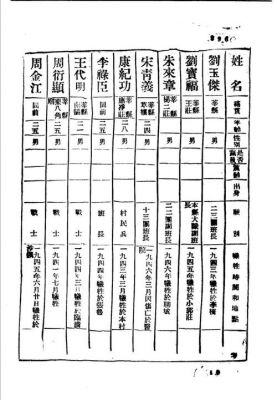 姓名 籍貫 年齡 性別 是否黨員 出身 職別 犧牲時間和地點
劉玉傑 莘縣 男 一九四三年犧牲於李樓
劉寶福 莘縣王莊 男 本縣大隊副班長 一九四五年犧牲於小郭莊
朱來章 男 二二團副班長 一九四六年犧牲於聊城
宋青義 莘縣 二四 男 十三團班長 一九四六年三月因傷亡於醫院
康紀功 莘縣 二八 男 村民兵 一九四三年三月犧牲於本村
李祿臣 同前 二五 男 班長 一九四四年犧牲於張魯
王代明 莘縣 男 戰士 一九四四年三月犧牲於臨清
周衍顯 莘縣 八角廟 二五 男 戰士 一九四一年七月犧牲
周金江 同前 二五 男 戰士 一九四五年六月廿日犧牲於